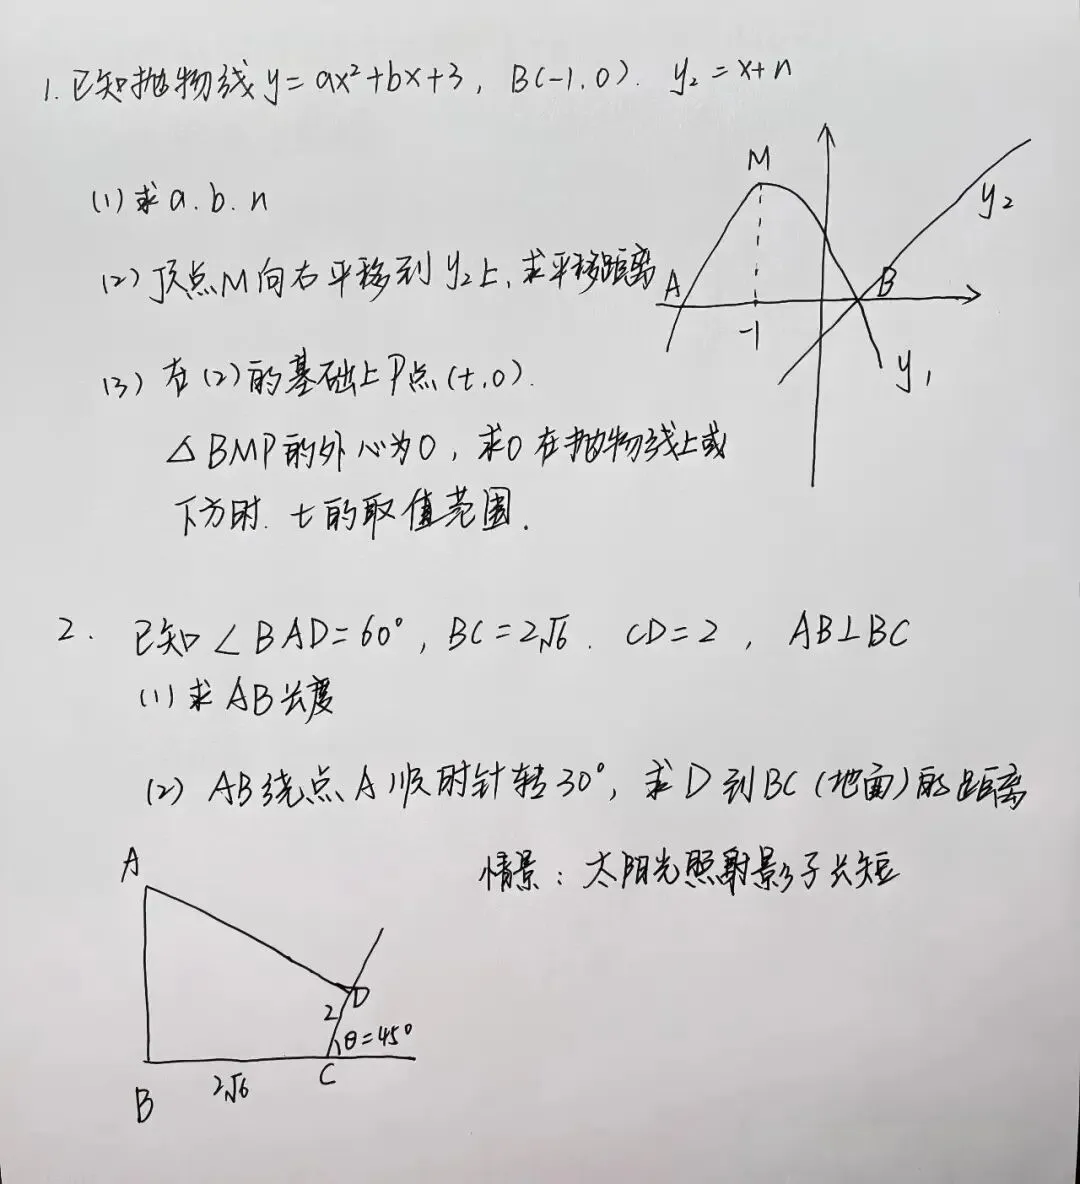 1. 已知抛物线 y=ax²+bx+3, B(-1,0). y₂=x+n
(1) 求 a.b.n
(2) 顶点M向右平移到 y₂上,求平移距离
(3) 在(2)的基础上P点(t,0).
△BMP的外心为O,求O在抛物线上或
下方时. t的取值范围.
M
y₂
A
B
-1
y₁
2. 已知∠BAD=60°, BC=2√6. CD=2, AB⊥BC
(1) 求AB长度
(2) AB绕点A顺时针转30°,求D到BC(地面)的距离
情景:太阳光照射影子长短
A
D
2
θ=45°
B
2√6
C